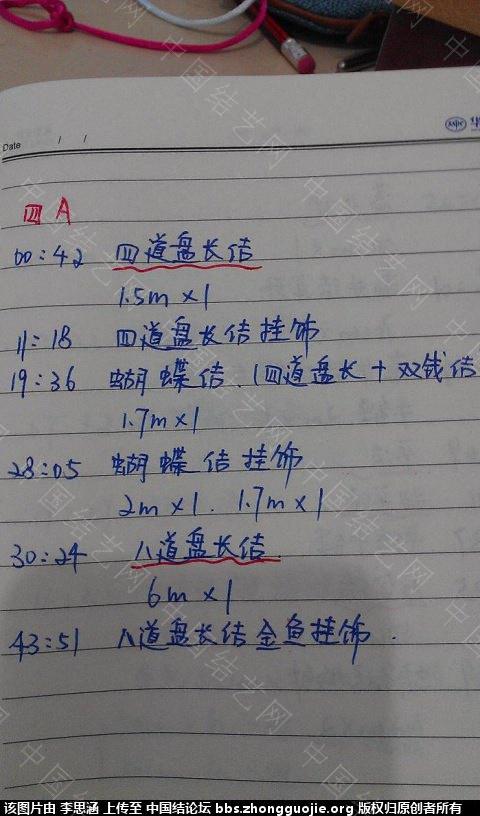 Date / /
四 A
00:42 四道盘长结
1.5m×1
11:18 四道盘长结挂饰
19:36 蝴蝶结.(四道盘长+双钱结
1.7m×1
28:05 蝴蝶结挂饰
2m×1. 1.7m×1
30:24 八道盘长结.
6m×1
43:51 八道盘长结金鱼挂饰.
中国结艺网
该图片由 李思涵 上传至 中国结论坛 bbs.zhongguojie.org 版权归原创者所有